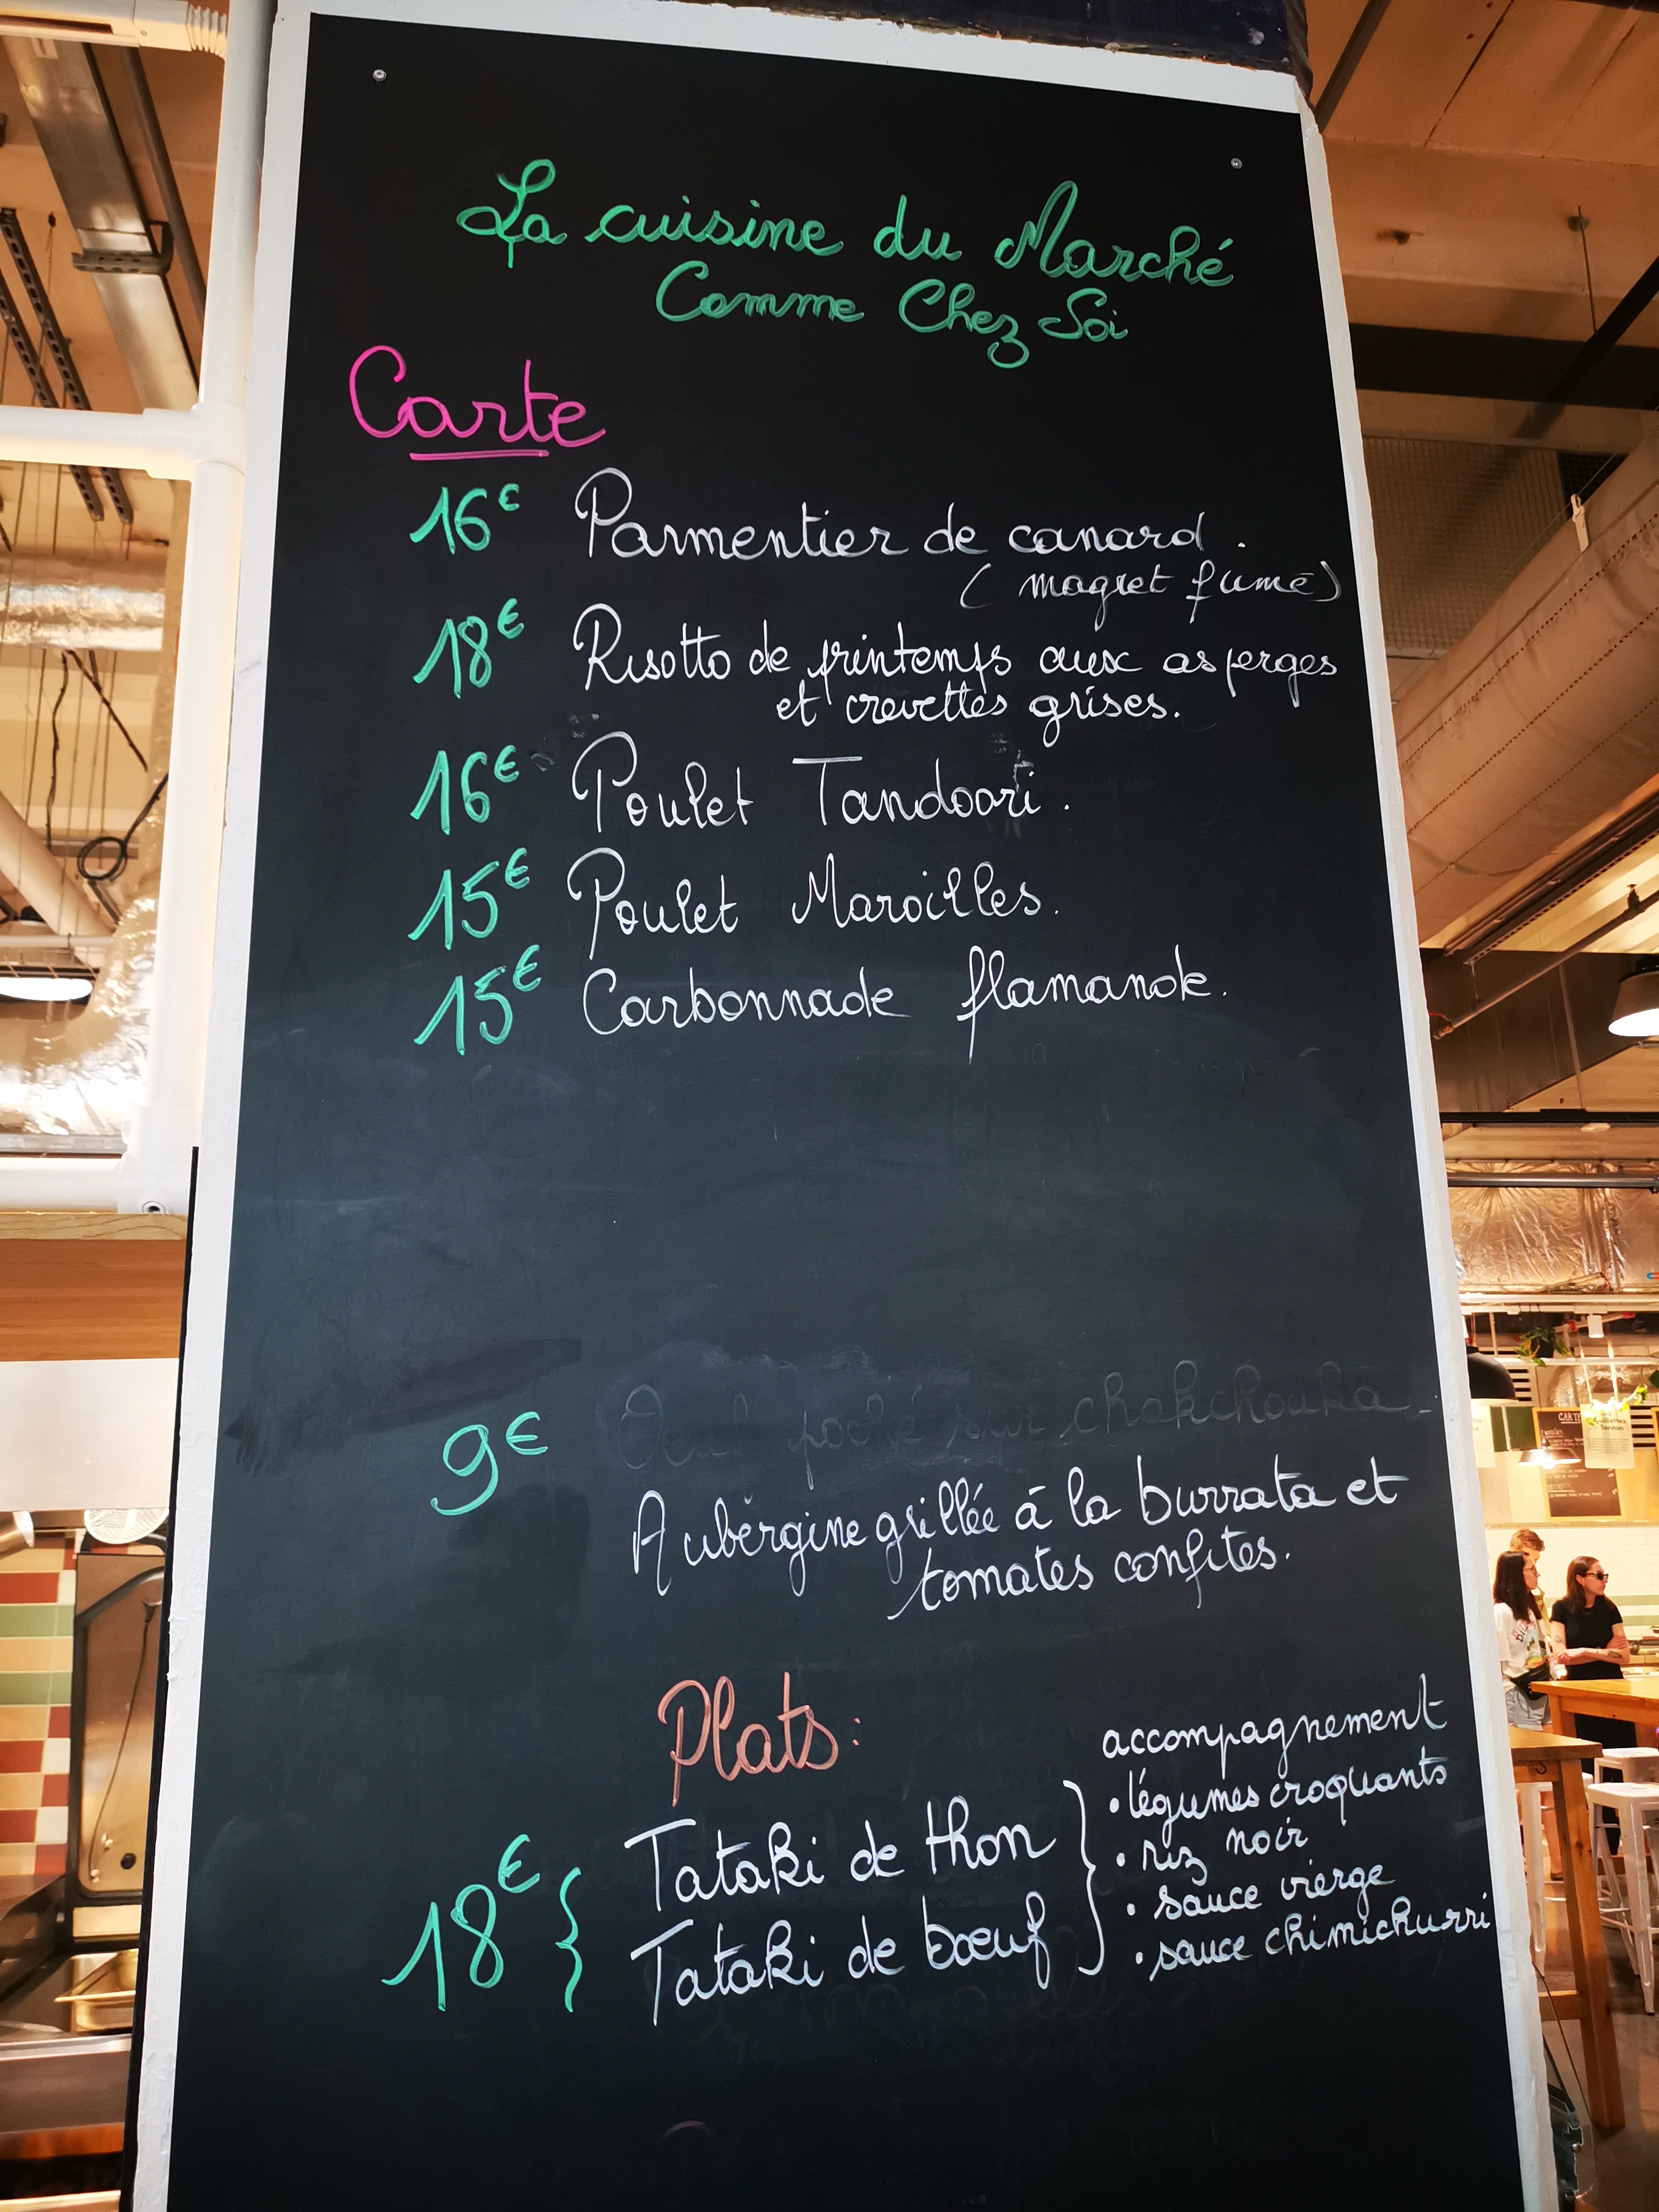 La cuisine du Marché
Comme Chez Soi
Carte
16€ Parmentier de canard.
( magret fumé)
18€ Risotto de printemps aux asperges
et crevettes grises.
16€ Poulet Tandoori.
15€ Poulet Maroilles.
15€ Carbonnade flamande.
poché sur chakchouka
9€
Aubergine grillée à la burrata et
tomates confites.
Plats:
accompagnement
• légumes croquants
• riz noir
• sauce vierge
• sauce chimichurri
18€ { Tataki de thon }
Tataki de bœuf